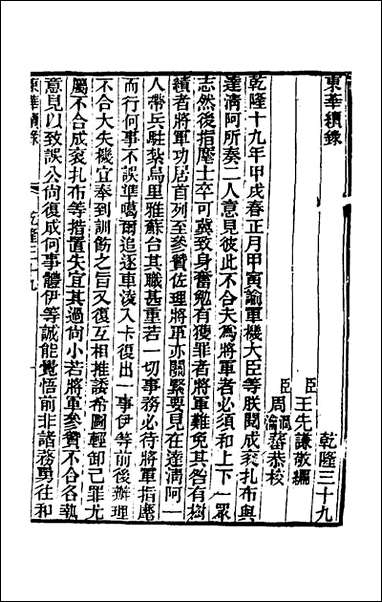 東華續錄
乾隆三十九
臣王先謙敬編
臣周潤蕃周瀹蕃恭校
乾隆十九年甲戌春正月甲寅諭軍機大臣等朕閱成袞扎布與
達淸阿所奏二人意見彼此不合夫爲將軍者必須和上下一眾
志然後指麾士卒可冀致身奮勉有獲罪者將軍難免其咎有樹
績者將軍功居首列至參贊佐理將軍亦關緊要見在達淸阿一
人帶兵駐紮烏里雅蘇台其職甚重若一切事務必待將軍指麾
而行何事不誤準噶爾追逐車淩入卡復出一事伊等前後辦理
不合大失機宜奉到訓飭之旨又復互相推諉希圖輕卸己罪尤
屬不合成袞扎布等措置失宜其過尙小若將軍參贊不合各執
意見以致誤公尙復成何事體伊等誠能覺悟前非諸務勇往和
東華續錄
乾隆三十九